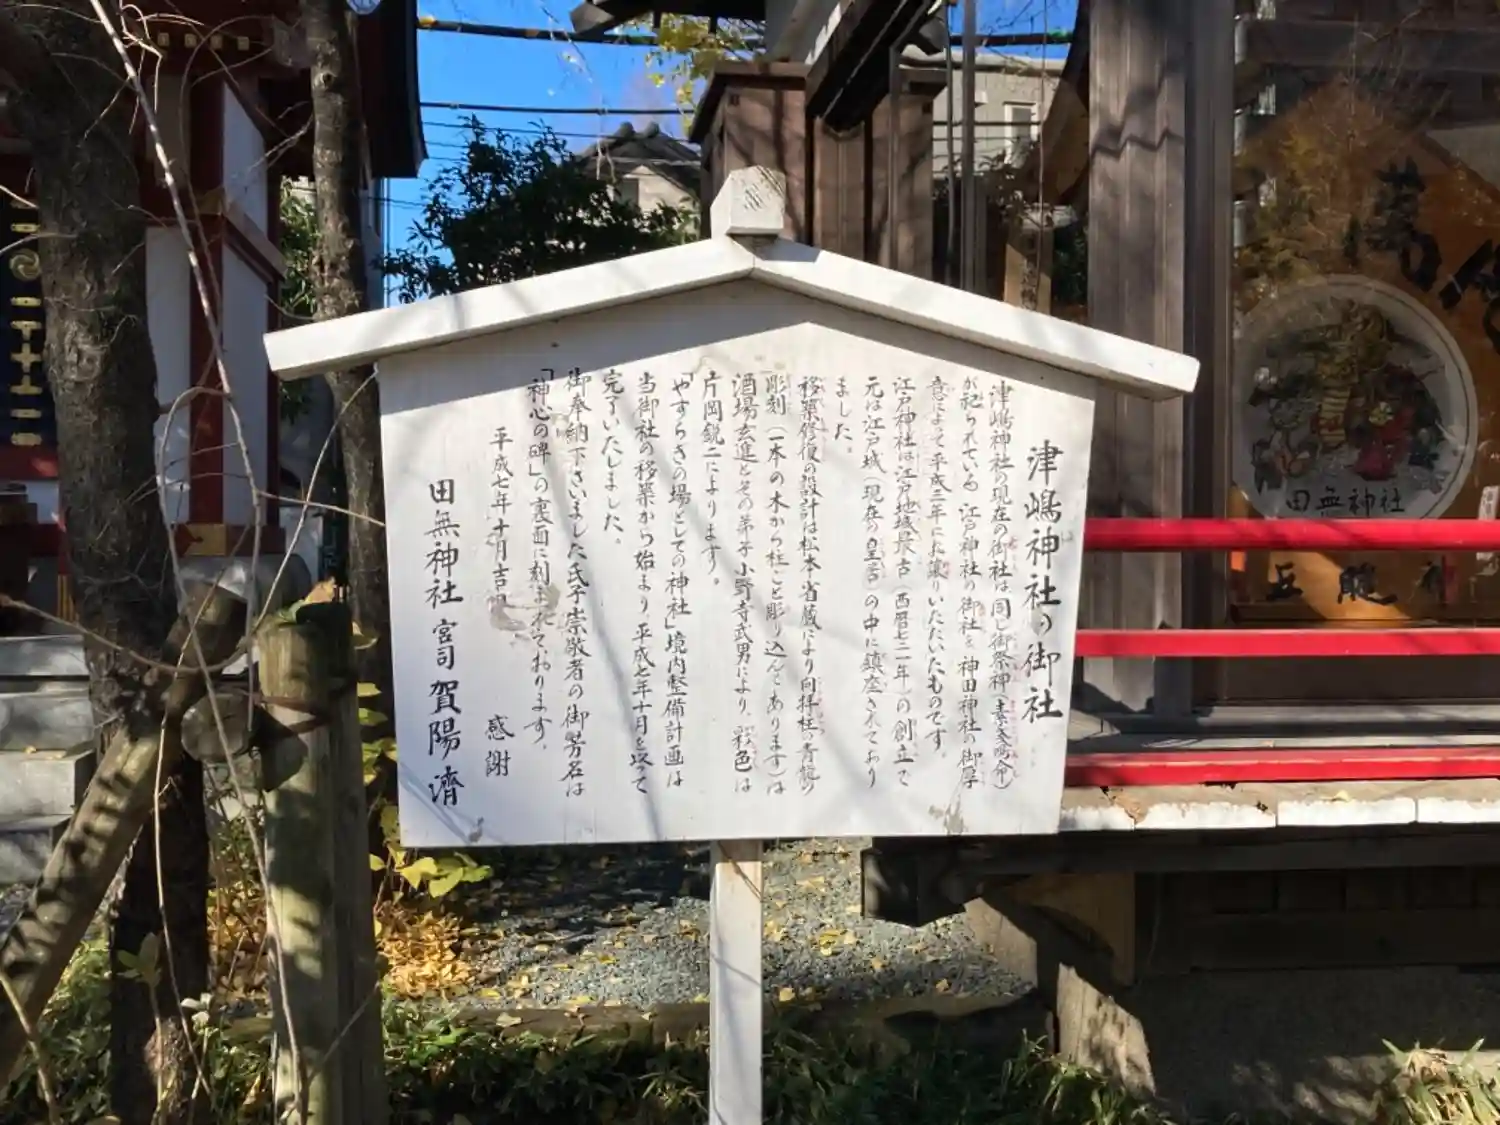 津嶋神社の御社
津嶋神社の現在の御社は同じ御祭神(素戔嗚命)
が祀られている 江戸神社の御社を神田神社の御厚
意によって平成三年にお譲りいただいたものです。
江戸神社は江戸地域最古(西暦七〇二年)の創立で
元は江戸城(現在の皇居)の中に鎮座されており
ました。
移築修復の設計は松本省蔵により向拝柱の青龍の
彫刻(一本の木から柱ごと彫り込んであります)は
酒場玄進とその弟子小野寺武男により、彩色は
片岡鋭二によります。
「やすらぎの場としての神社」境内整備計画は
当御社の移築から始まり、平成七年十月を以って
完了いたしました。
御奉納下さいました氏子崇敬者の御芳名は
「神心の碑」の裏面に刻まれております。
感謝
平成七年十月吉日
田無神社 宮司 賀陽 濟
田無神社
五龍神